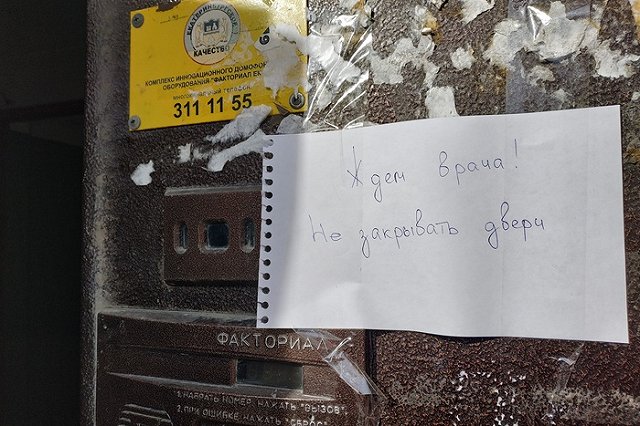 ЕКАТЕРИНБУРГСКОЕ
КАЧЕСТВО
КОМПЛЕКС ИННОВАЦИОННОГО ДОМОФОН
ОБОРУДОВАНИЯ "ФАКТОРИАЛ ЕК
многоканальный телефон
311 11 55
Ждем врача!
Не закрывать двери
ФАКТОРИАЛ
1. НАБРАТЬ НОМЕР, НАЖАТЬ "ВЫЗОВ".
2. ПРИ ОШИБКЕ НАЖАТЬ "СБРОС"